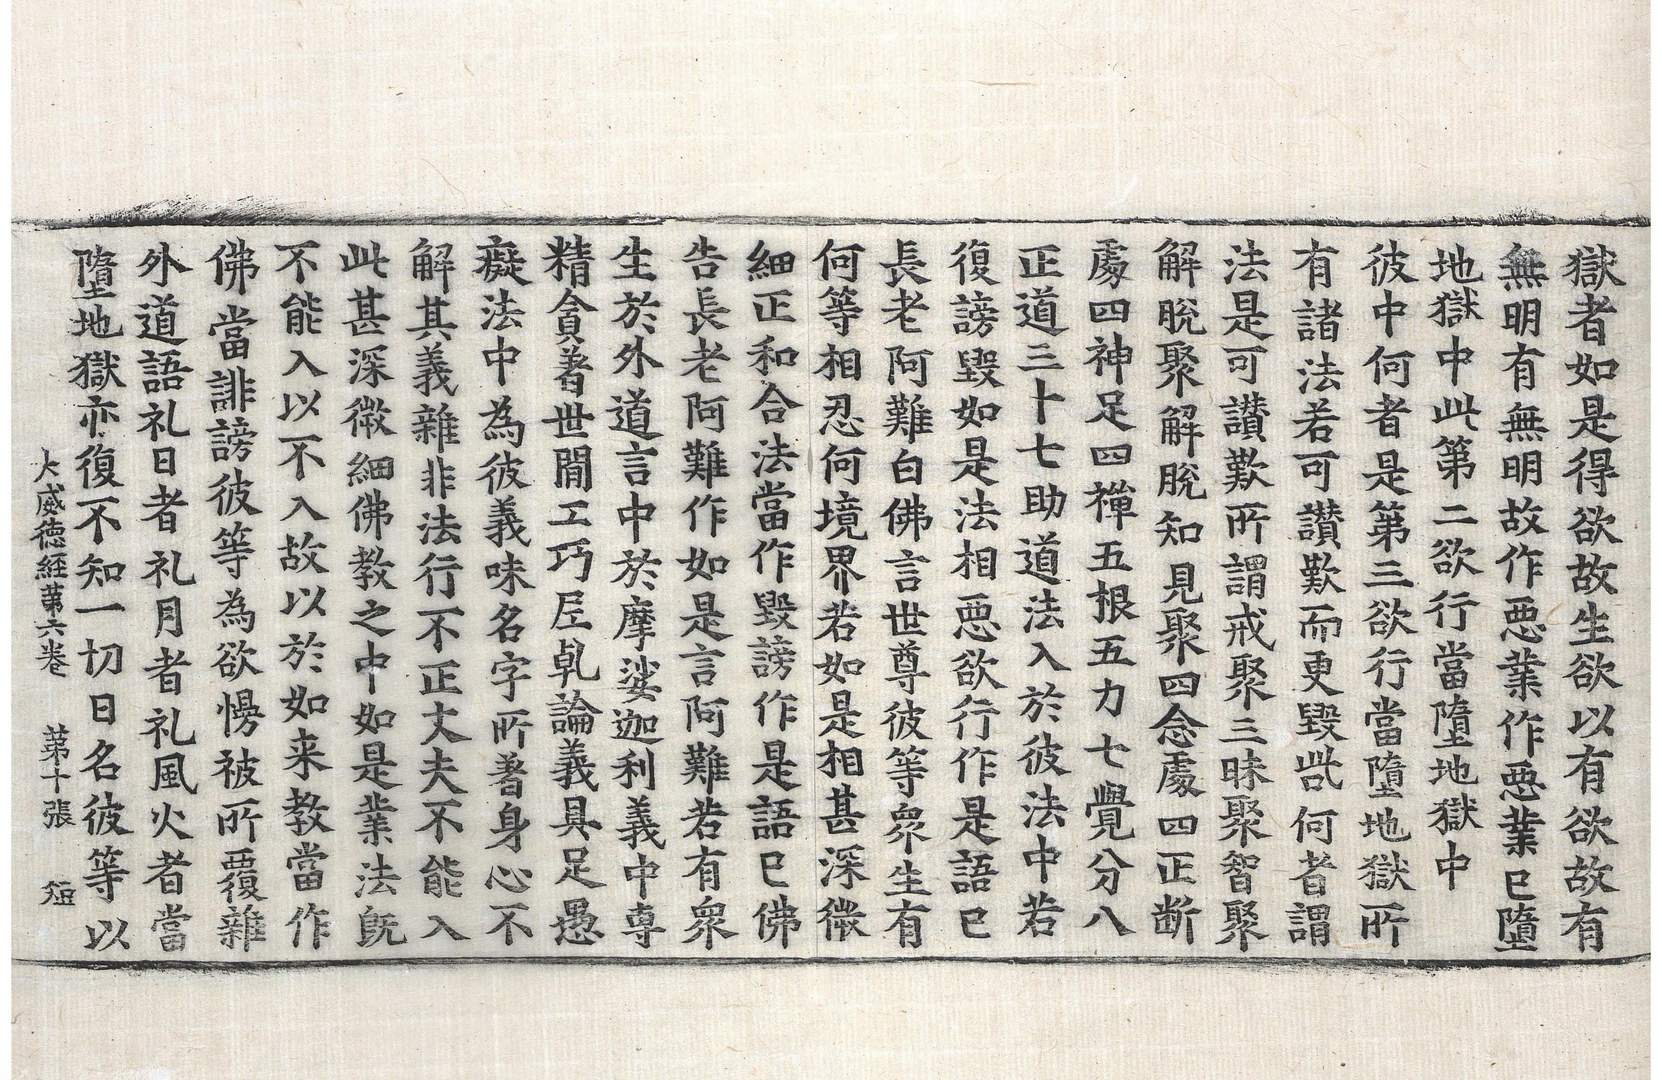 獄者如是得欲故生欲以有欲故有
無明有無明故作惡業作惡業已墮
地獄中此第二欲行當墮地獄中
彼中何者是第三欲行當墮地獄所
有諸法若可讃歎而更毀呰何者謂
法是可讃歎所謂戒聚三昧聚智聚
解脫聚解脫知見聚四念處四正斷
處四神足四禪五根五力七覺分八
正道三十七助道法入於彼法中若
復謗毀如是法相惡欲行作是語已
長老阿難白佛言世尊彼等衆生有
何等相忍何境界若如是相甚深微
細正和合法當作毀謗作是語已佛
告長老阿難作如是言阿難若有衆
生於外道言中於摩娑迦利義中專
精貪著世間工巧尼乹論義具足愚
癡法中為彼義味名字所著身心不
解其義雜非法行不正丈夫不能入
此甚深微細佛教之中如是業法旣
不能入以不入故以於如来教當作
佛當誹謗彼等為欲慢被所覆雜
外道語礼日者礼月者礼風火者當
墮地獄亦復不知一切日名彼等以
大威德經第六卷 第十張 短